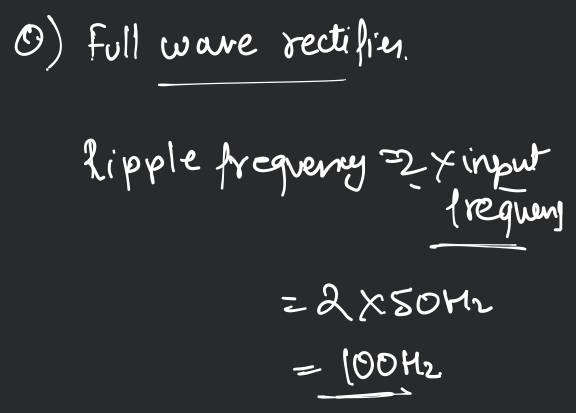 0) Full wave rectifier.
Ripple frequency = 2 × input
frequency
= 2 × 50Hz
= 100Hz